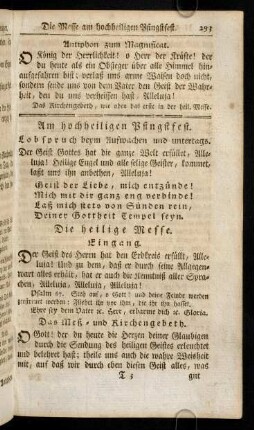 Die Messe am hochheiligen Pfingstfest. 293
Antiphon zum Magnificat.
O König der Herrlichkeit! o Herr der Kräfte! der
du heute als ein Obsieger über alle Himmel hin-
aufgefahren bist: verlaß uns arme Waisen doch nicht,
sondern sende uns von dem Vater den Geist der Wahr-
heit, den du uns verheissen hast. Alleluja!
Das Kirchengebeth, wie oben das erste in der heil. Messe.
Am hochheiligen Pfingstfest.
Lobspruch beym Aufwachen und untertags.
Der Geist Gottes hat die ganze Welt erfüllet, Alle-
luja! Heilige Engel und alle selige Geister, kommet,
laßt uns ihn anbethen, Alleluja!
Geist der Liebe, mich entzünde!
Mich mit dir ganz eng verbinde!
Laß mich stets von Sünden rein,
Deiner Gottheit Tempel seyn.
Die heilige Messe.
Eingang.
Der Geist des Herrn hat den Erdkreis erfüllt, Alle-
luja! Und zu dem, daß er durch seine Allgegen-
wart alles erhält, hat er auch die Kenntniß aller Spra-
chen, Alleluja, Alleluja, Alleluja!
Psalm 67. Steh auf, o Gott! und deine Feinde werden
zerstreuet werden: Fliehet ihr vor ihm, die ihr ihn hasset.
Ehre sey dem Vater ꝛc. Herr, erbarme dich ꝛc. Gloria.
Das Meß- und Kirchengebeth.
O Gott! der du heute die Herzen deiner Glaubigen
durch die Sendung des heiligen Geistes erleuchtet
und belehret hast; theile uns auch die wahre Weisheit
mit, auf daß wir durch eben diesen Geist alles, was
T 3 gut